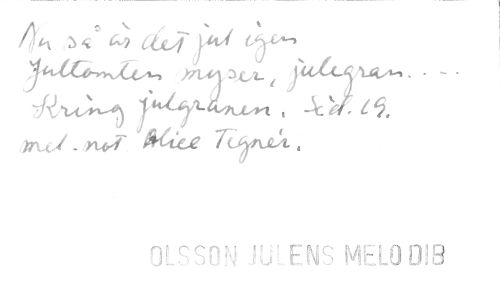 Nu så är det jul igen
Jultomten myser, julegran....
Kring julgranen. Sid. 19.
mel. not Alice Tegnér.
OLSSON JULENS MELODIB